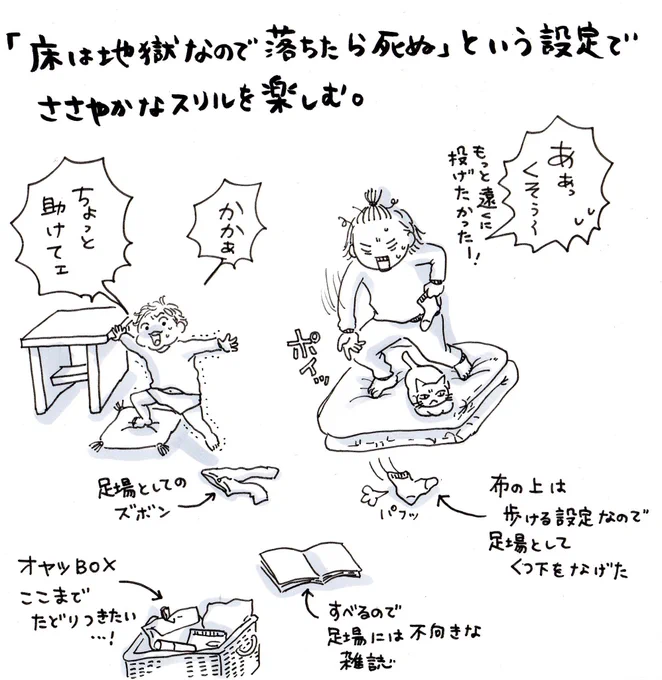 「床は地獄なので落ちたら死ぬ」という設定で
ささやかなスリルを楽しむ。
ああっ
くそぅ〜
もっと遠くに
投げたかったー!
かかぁ
ちょっと
助けてェ
ポイッ
足場としての
ズボン
パフッ
布の上は
歩ける設定なので
足場として
くつ下をなげた
オヤツBOX
ここまで
たどりつきたい
…!
すべるので
足場には不向きな
雑誌